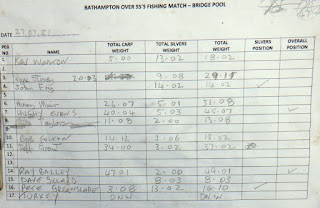 BATHAMPTON OVER 55'S FISHING MATCH – BRIDGE POOL
DATE 27.07.21
PEG NO. NAME TOTAL CARP WEIGHT TOTAL SILVERS WEIGHT TOTAL WEIGHT SILVERS POSITION OVERALL POSITION
1 5.00 13.02 18.02
2
3 20.03 9.08 29.11
4 John 14.02 14.02 ✓
5
6 26.07 5.01 31.08
7 EVANS 40.04 5.03 45.07 ✓
8 11.08 2.00 13.08
9
10 Bob 14.12 3.06 18.02
11 34.00 3.02 37.02 ✓
12
13
14 RAY BAILEY 47.01 2.00 49.01 ✓
15 DAVE 8.03 8.03
16 PETE GREENSLADE 3.08 13.02 16.10 ✓
17 TURKEY DNW DNW